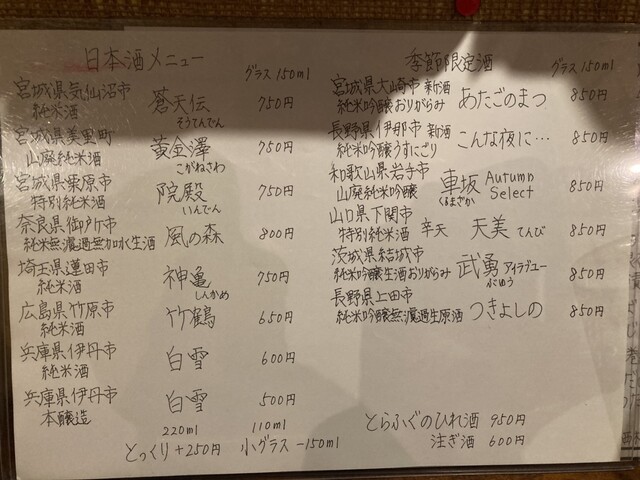 日本酒メニュー グラス150ml
宮城県気仙沼市
純米酒 蒼天伝 750円
そうてんでん
宮城県美里町
山廃純米酒 黄金澤 750円
こがねさわ
宮城県栗原市
特別純米酒 院殿 750円
いんでん
奈良県御所市
純米無濾過無加水生酒 風の森 800円
埼玉県蓮田市
純米酒 神亀 750円
しんかめ
広島県竹原市
純米酒 竹鶴 650円
兵庫県伊丹市
純米酒 白雪 600円
兵庫県伊丹市
本醸造 白雪 500円
220ml 110ml
とっくり+250円 小グラス-150ml
季節限定酒 グラス150ml
宮城県大崎市 新酒
純米吟醸おりがらみ あたごのまつ 850円
長野県伊那市 新酒
純米吟醸うすにごり こんな夜に… 850円
和歌山県岩手市
山廃純米吟醸 車坂 Autumn Select 850円
くるまざか
山口県下関市
特別純米酒 辛天 天美 てんび 850円
茨城県結城市
純米吟醸生酒おりがらみ 武勇 アイラブユー 850円
ぶゆう
長野県上田市
純米吟醸無濾過生原酒 つきよしの 850円
とらふぐのひれ酒 950円
注ぎ酒 600円